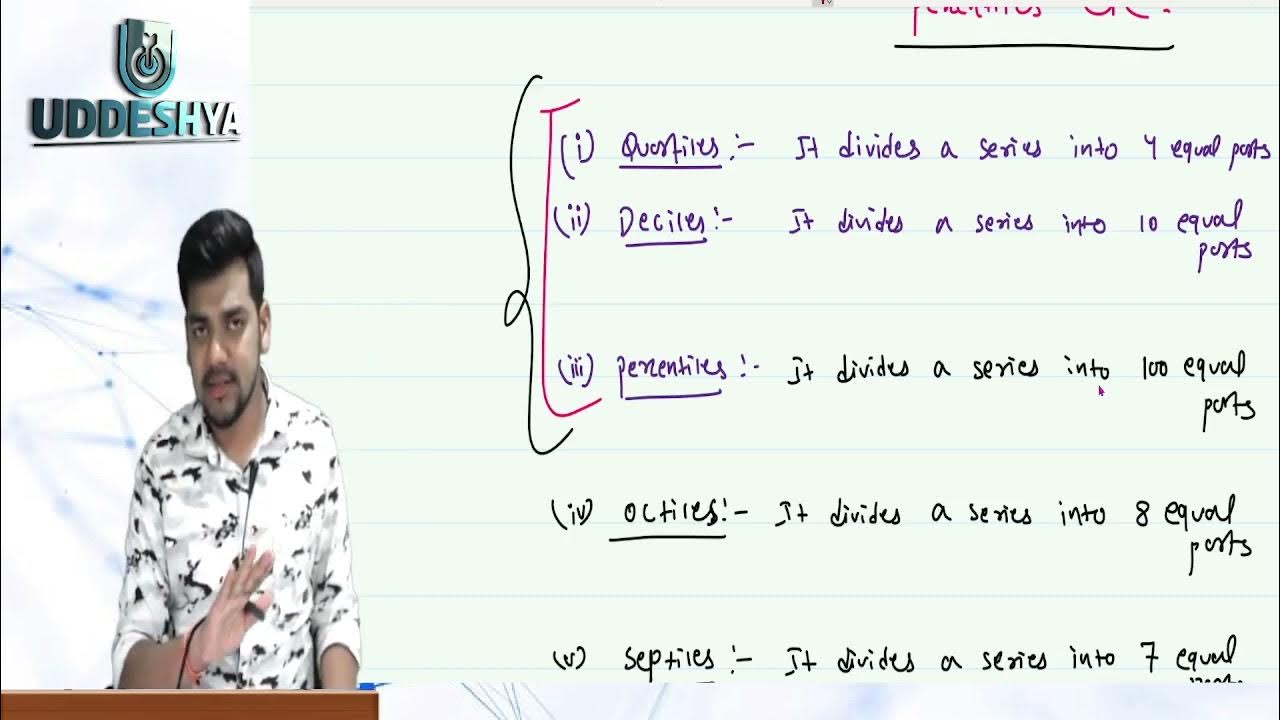 UDDESHYA
etc.
(i) Quartiles :- It divides a series into 4 equal parts
(ii) Deciles :- It divides a series into 10 equal
parts
(iii) percentiles :- It divides a series into 100 equal
parts
(iv) octiles :- It divides a series into 8 equal
parts
(v) septiles :- It divides a series into 7 equal